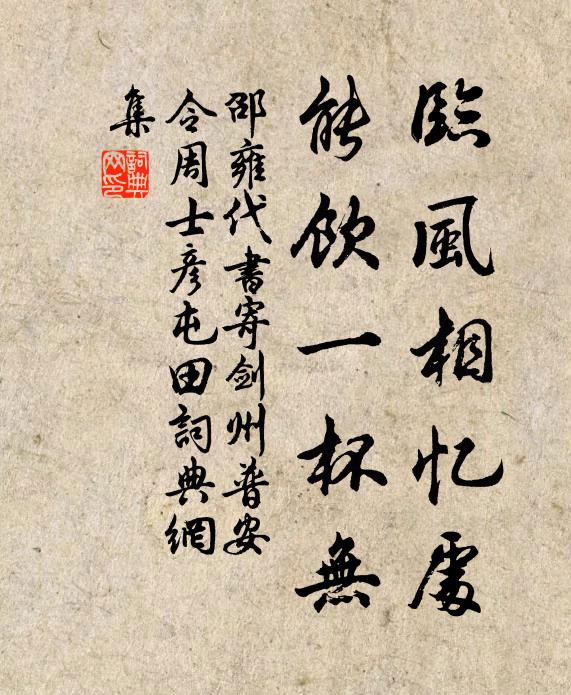 臨風相忆處
能飲一杯無
邵雍代書寄劍州普安
令周士彦屯田詞典網
集
詞典
网印